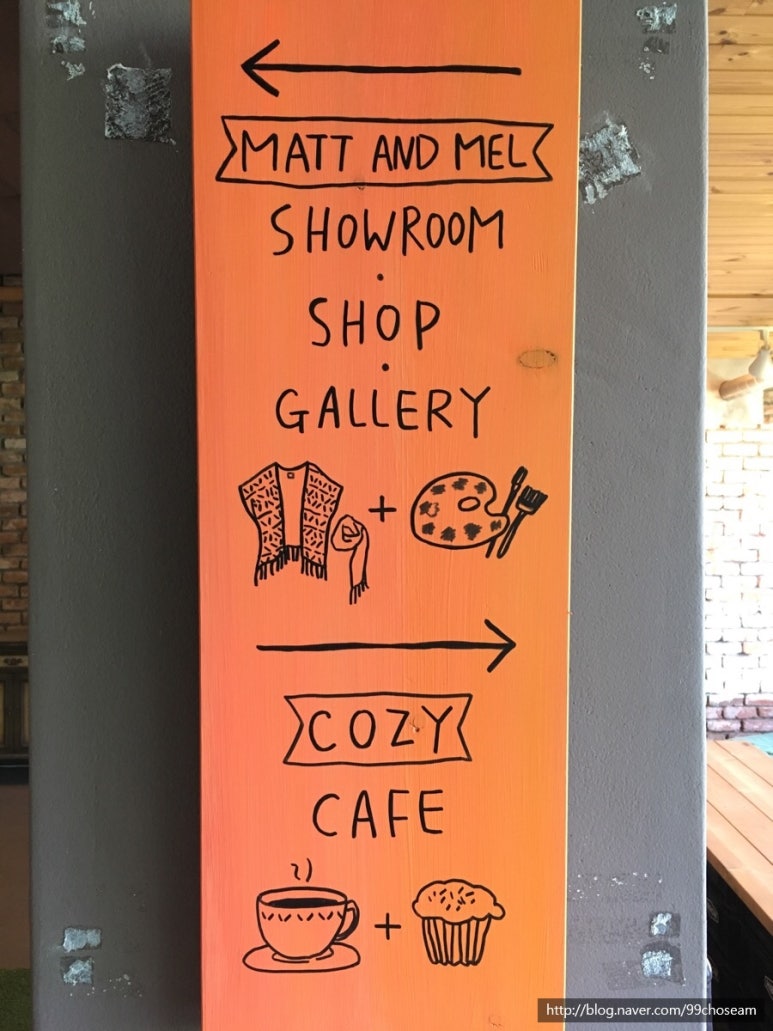 MATT AND MEL
SHOWROOM
·
SHOP
·
GALLERY
+
COZY
CAFE
+
http://blog.naver.com/99choseam